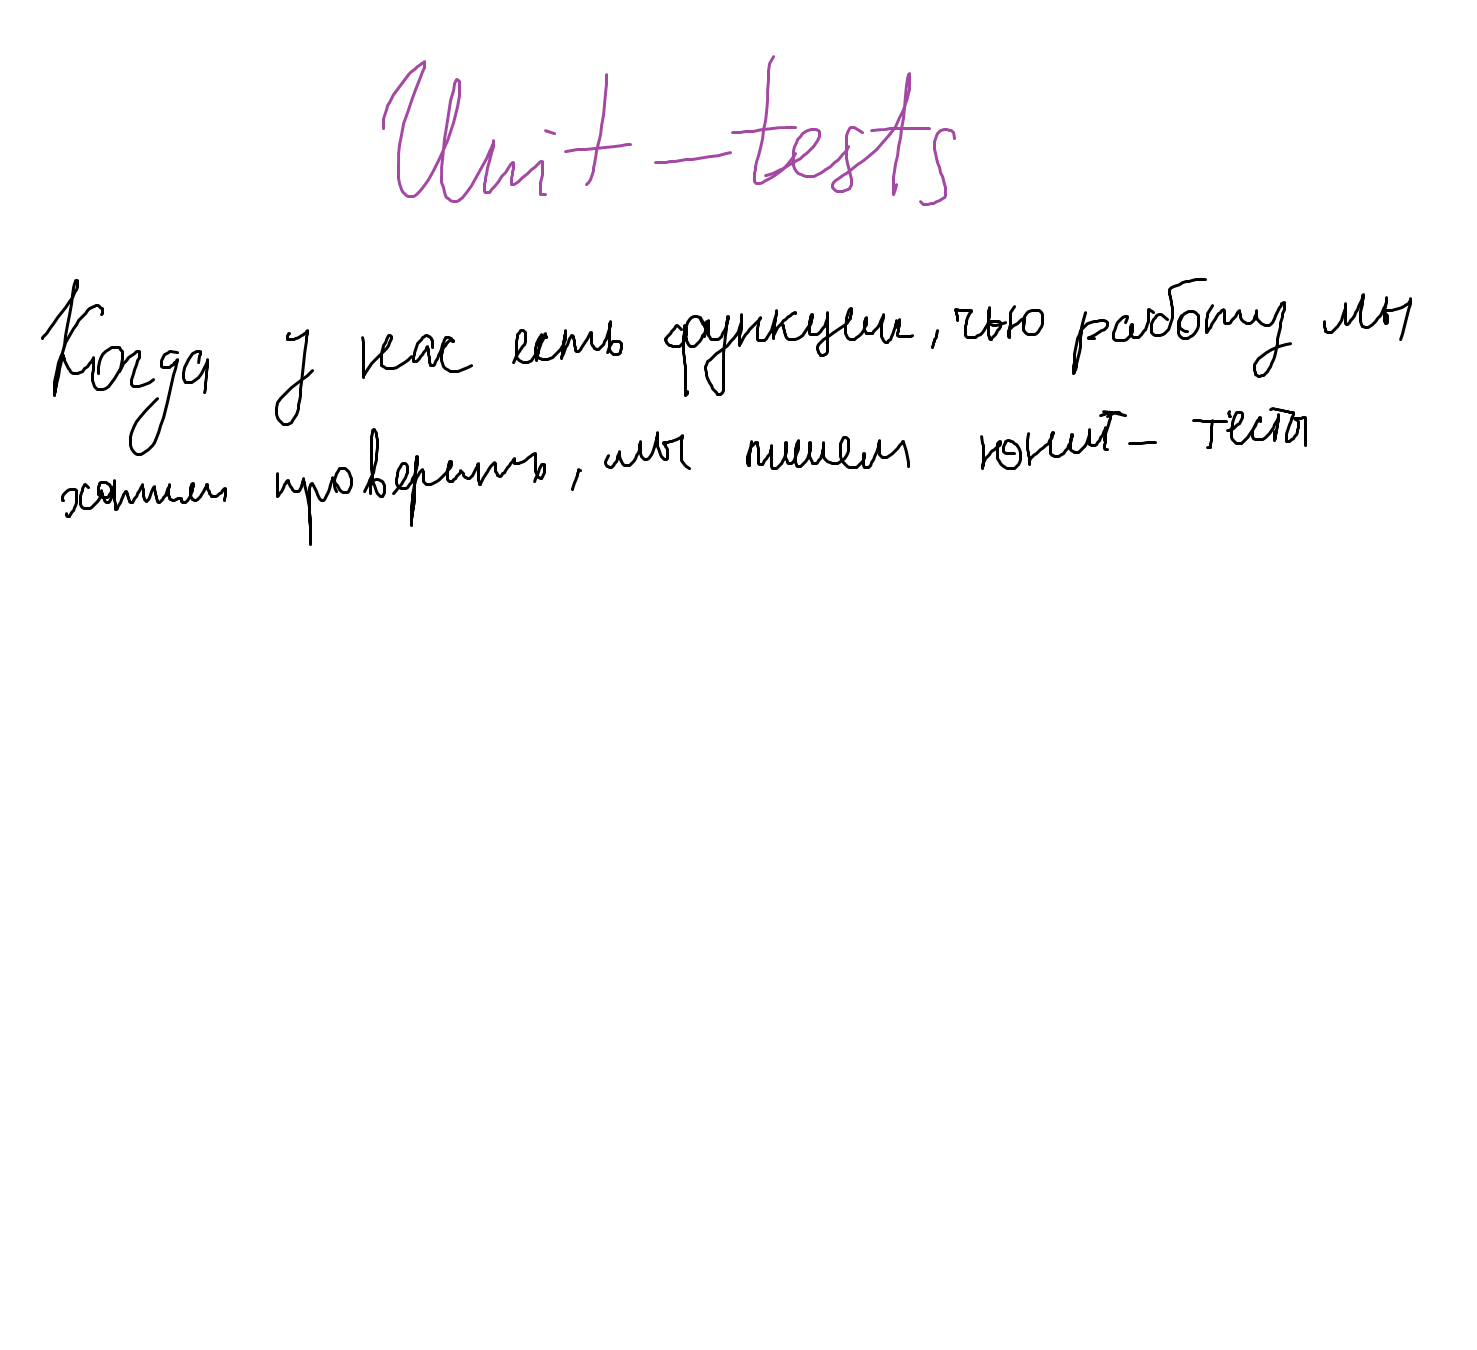 Unit-tests
Когда у нас есть функции, чью работу мы
хотим проверить, мы пишем юнит- тесты